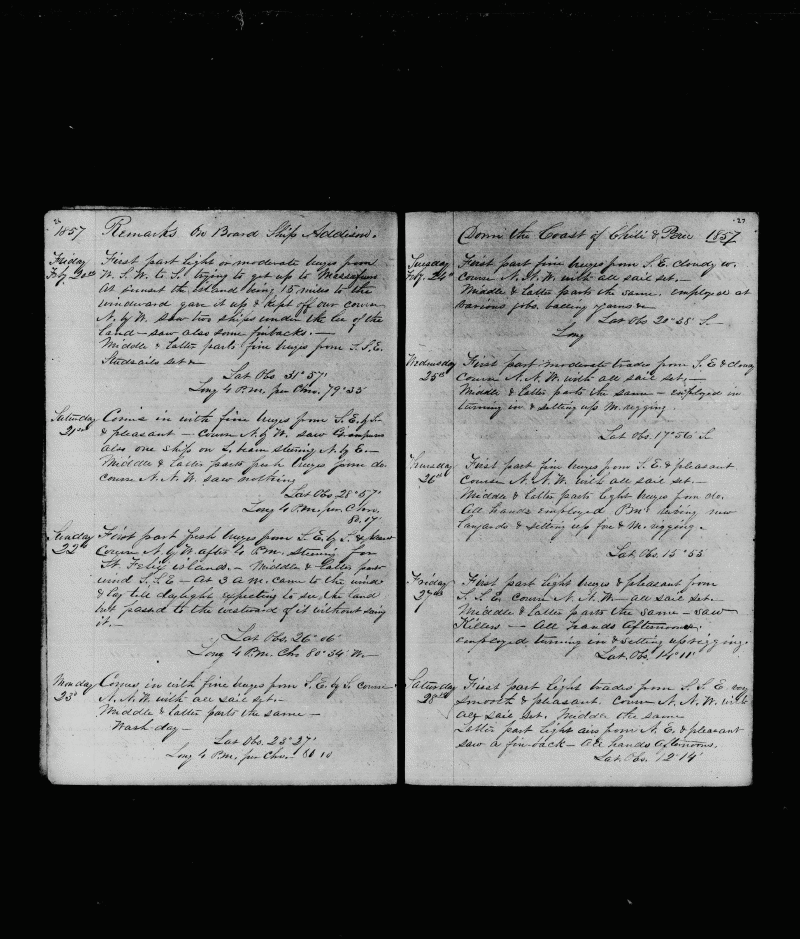 26
1857 Remarks on Board Ship Addison.
Friday First part light or moderate breezes from
Feby. 20th W. S. W. to S. trying to get up to
At sunset the island being 15 miles to the
windward gave it up & kept off our course
N. by W. saw two ships under the lee of the
land — saw also some finbacks. —
Middle & latter parts fine breezes from S. S. E.
Studsails set &c
Lat Obs 31° 57'
Long 4 P.m. per Chro. 79° 35
Saturday Comes in with fine breezes from S. E. by S.
21st & pleasant — Course N. by W. saw Grampus
also one ship on L. beam steering N. by E. —
Middle & latter parts fresh breezes from do.
course N. N. W. saw nothing
Lat Obs. 28° 57'
Long 4 P.m. per Chro.
80. 17'
Sunday First part fresh breezes from S. E. by S. & pleasant
22d Course N. by W. after 4 P.m. steering for
St. Felix islands. — Middle & latter parts
wind S. S. E — At 3 a.m. came to the wind
& lay till daylight expecting to see the land
but passed to the westward of it without seeing
it. —
Lat Obs. 26° 06'
Long 4 P.m. Chr 80° 34' W. —
Monday Comes in with fine breezes from S. E. by S. course
23d N. N. W. with all sail set. —
Middle & latter parts the same —
Wash-day —
Lat Obs. 23° 27'
Long 4 P.m. per Chro. 10
27
Down the Coast of Chili & Peru 1857
Tuesday First part fine breezes from S. E. cloudy w.
Feby. 24th Course N. N. W. with all sail set. —
Middle & latter parts the same. employed at
various jobs. balling yarns &c
Lat Obs 20° 38' S. —
Long
Wednesday First part moderate trades from S. E & cloudy
25th Course N. N. W. with all sail set; —
Middle & latter parts the same — employed in
turning in & setting up M. rigging.
Lat Obs. 17° 56' S.
Thursday First part fine breezes from S. E. & pleasant
26th Course N. N. W. with all sail set —
Middle & latter parts light breezes from do.
All hands employed P.m. reeving new
lanyards & setting up fore & m. rigging.
Lat. Obs 15° 53
Friday First part light breezes & pleasant from
27th S. S. E. course N. N. W. — all sail set. —
Middle & latter parts the same — saw
Killers — All hands afternoons
employed turning in & setting up rigging.
Lat. Obs. 14° 11'
Saturday First part light trades from S. S. E. very
28th smooth & pleasant. Course N. N. W. with
all sail set. Middle the same
Latter part light airs from N. E. & pleasant
saw a fin-back — All hands afternoons.
Lat. Obs. 12° 14'